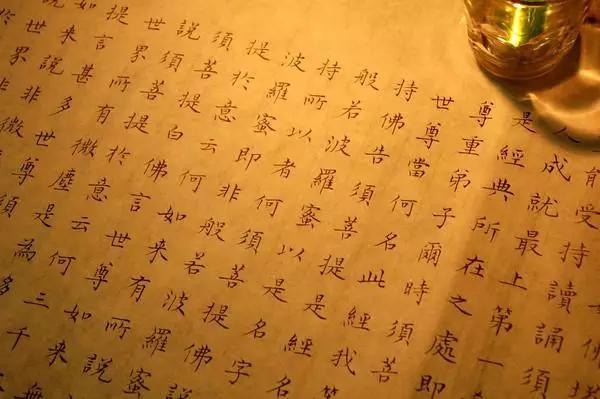 有受持讀誦須
人成就最上第一
是經典所在之處即
尊重弟子爾時須菩
世尊當何名此經我等
持佛告須菩提是經名
般若波羅蜜以是名字
持所以者何須菩提佛說
波羅蜜即非般若波羅蜜
提於意云何如來有所說
須菩提白佛言世尊如來無
說須菩提於意云何三千
世界所有微塵是為多
提言甚多世尊須
如來說非微
說世界非
於